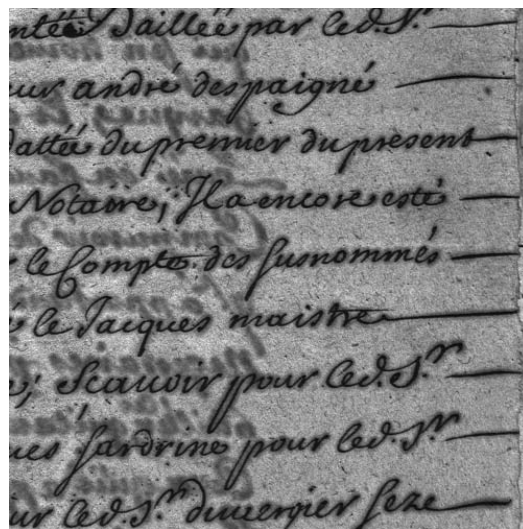 ntée Baillée par led. S.r
eur andré despaigné
dattée du premier du present
Notaire; Il a encore esté
le Compte des susnommés
le Jacques maistre
; Scauoir pour led. S.r
ues Sardrine pour led. S.r
ur led. S.r duuergier seze